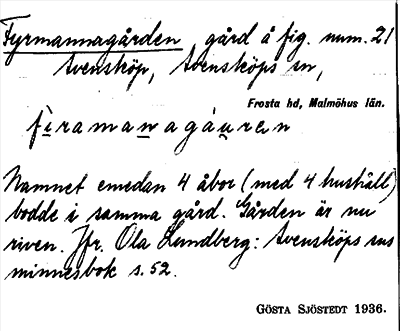 Fyrmannagården gård å fig. num. 21
Svensköp, Svensköps sn,
Frosta hd, Malmöhus län.
Namnet emedan 4 åbor (med 4 hushåll)
bodde i samma gård. Gården är nu
riven. Jfr. Ola Lundberg: Svensköps sns
minnesbok s. 52.
GÖSTA SJÖSTEDT 1936.